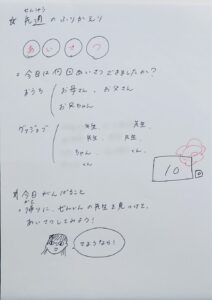 せんしゅう
☆先週のふりかえり
あいさつ
○今日は何回あいさつできましたか？
おうち（お母さん、お父さん
お兄ちゃん
先生 先生
先生 先生
ちゃん くん
くん くん
10
今日がんばること
○帰りに、ぜんいんの先生を見つけて、
あいさつしてみよう！
さようなら！